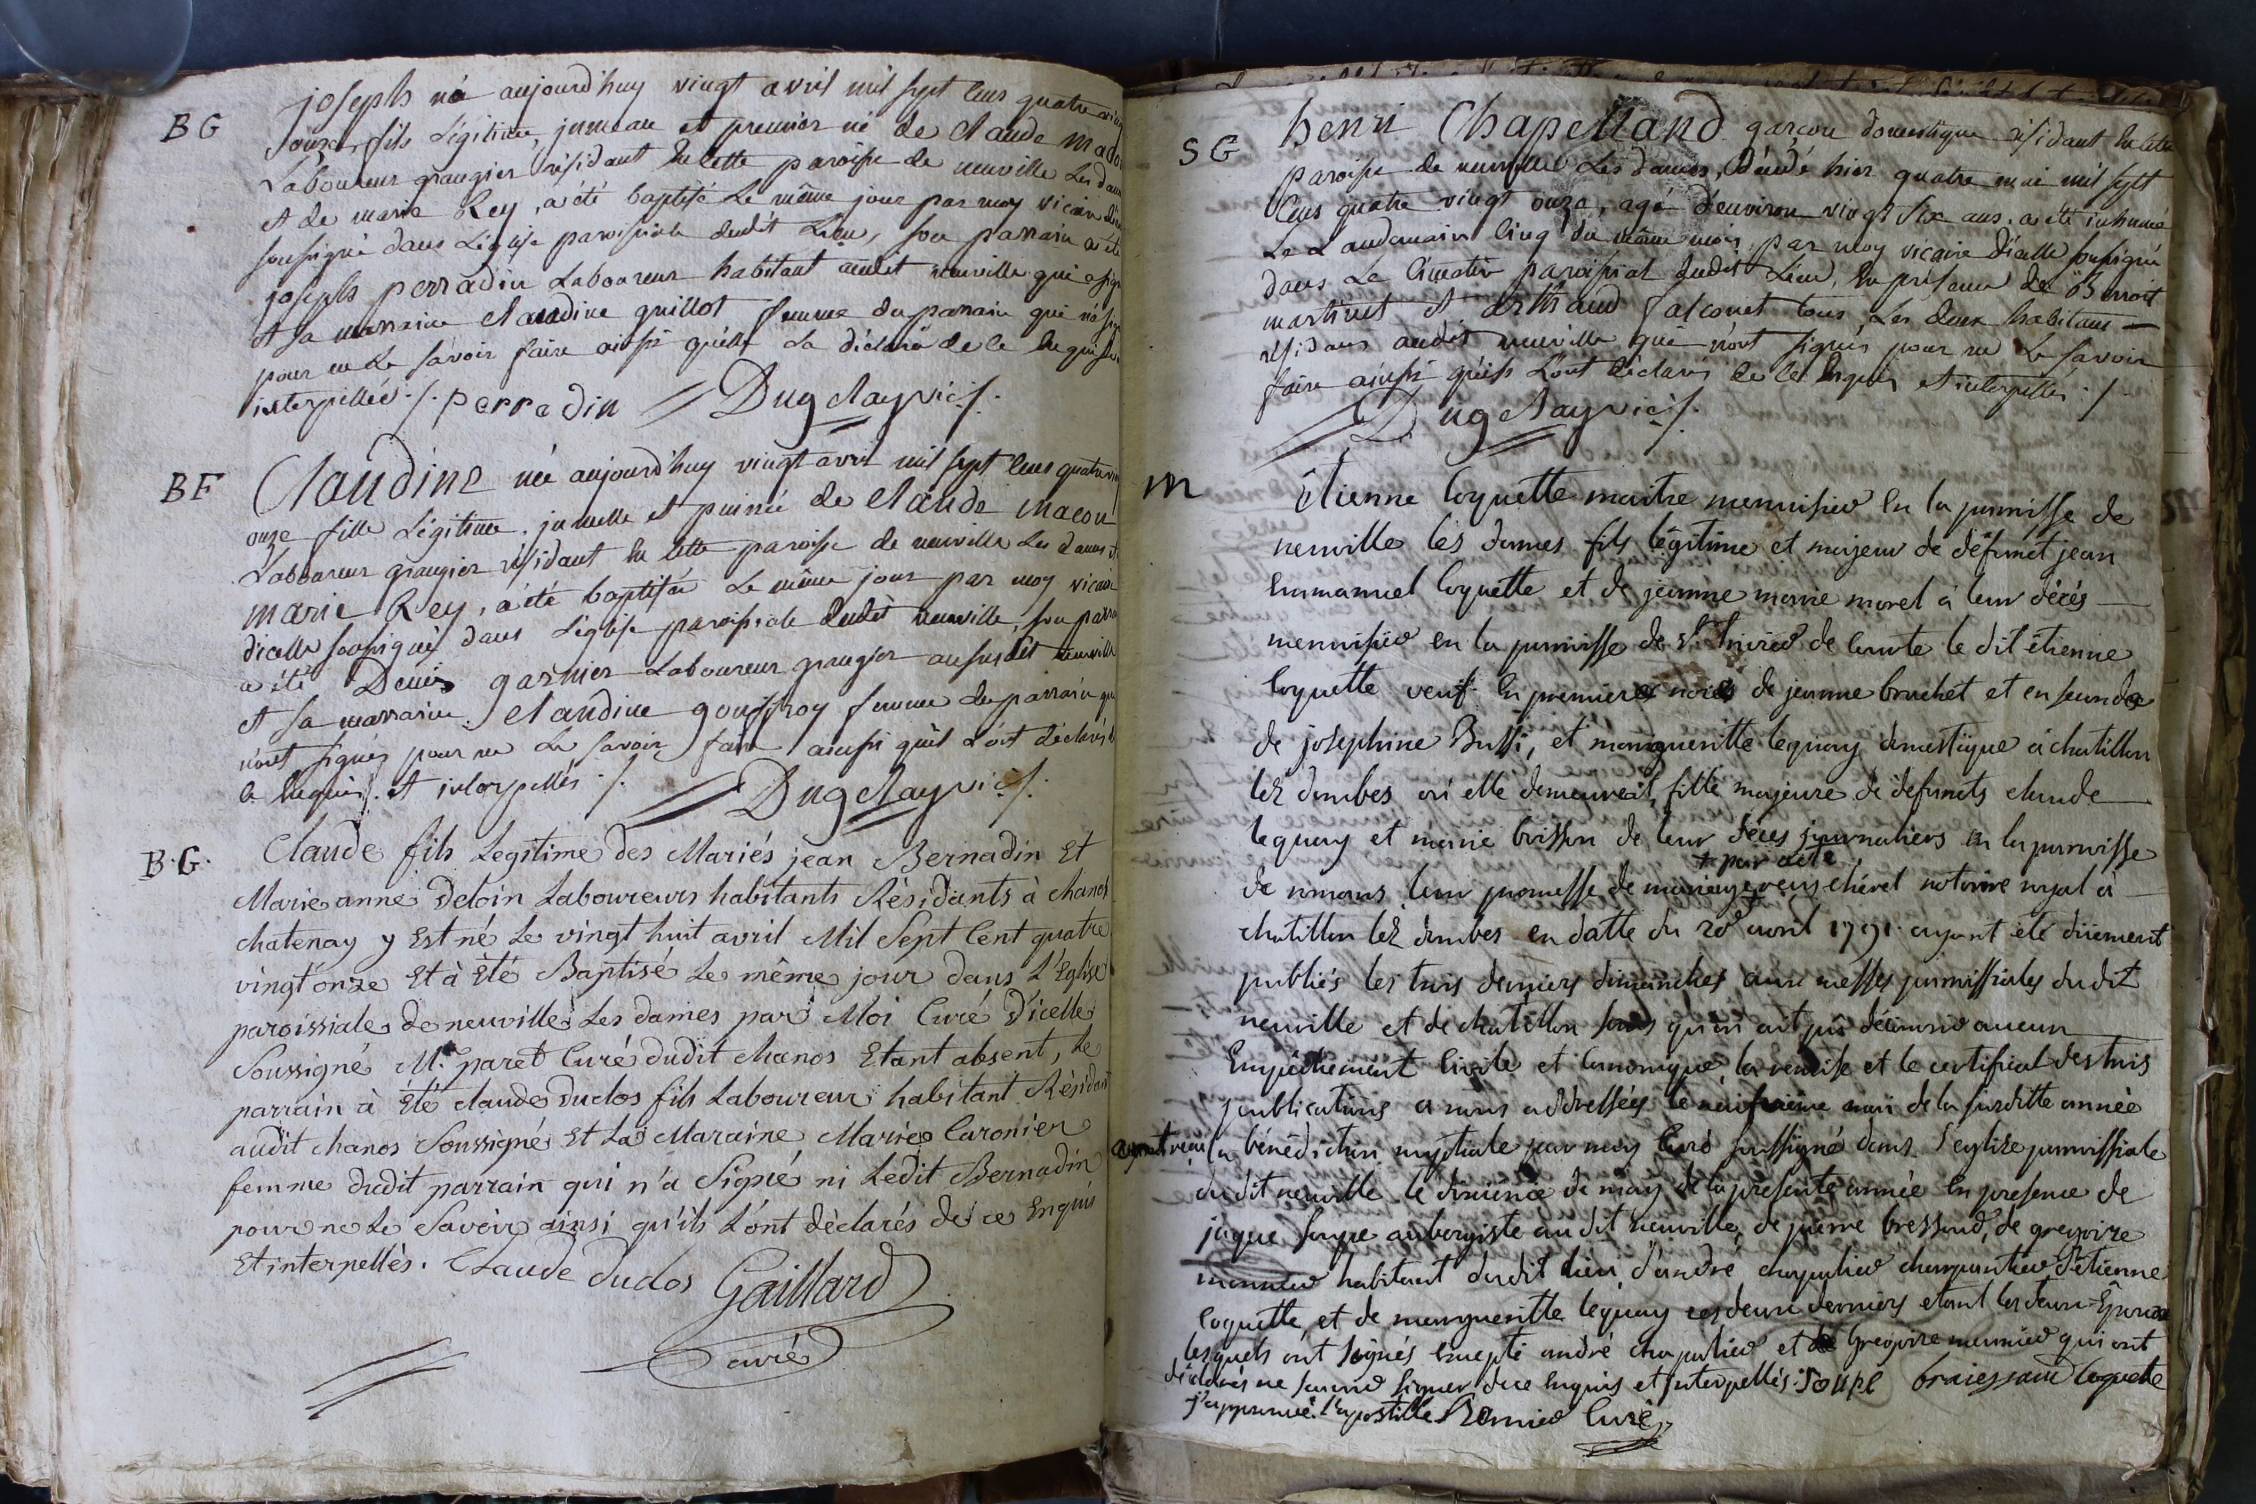 BG
joseph né aujourd'huy vingt avril mil sept cens quatre vin
onze, fils légitime, jumeau et premier né de claude macon
Laboureur grangier résidant en cette paroisse de neuville Les dames
et de marie Rey, a été baptisé Le même jour par moy vicaire
soussigné dans L'église paroissiale dudit Lieu, son parrain a été
joseph perradin Laboureur habitant audit neuville qui a signé
et sa marraine claudine guillot femme du parrain qui n'a signé
pour ne Le savoir faire ainsi qu'elle L'a déclaré de ce enquise
interpellée ./. perradin Dugclay vic./.
BF
Claudine née aujourd'huy vingt avril mil sept cens quatre vin
onze fille Légitime, jumelle et puinée de claude macon
Laboureur grangier résidant en cette paroisse de neuville Les dames et
marie Rey, a été baptisée Le même jour par moy vicaire
dicelle soussigné dans L'église paroissiale dudit neuville, son parrain
a été Denis garnier Laboureur grangier au susdit neuville
et sa marraine claudine gouffroy femme du parrain qui
n'ont signés pour ne Le savoir faire ainsi qu'il L'ont déclarés d
e enquis et interpellés ./. Dugclay vic./.
B.G.
Claude fils Legitime des Mariés jean Bernadin Et
Marie anne Deloin Laboureurs habitants Résidants à chanos
chatenay y Est né Le vingt huit avril Mil Sept Cent quatre
vingt onze Et à Eté Baptisé Le même jour dans L'Eglise
paroissiale de neuville Les dames par Moi Curé D'icelle
Soussigné M.r paret Curé dudit chanos Etant absent, Le
parrain à Eté claude Duclos fils Laboureur habitant Résidant
audit chanos Soussigné Et La Maraine Marie Caronier
femme dudit parrain qui n'a Signé ni Ledit Bernadin
pour ne Le Savoir ainsi qu'ils L'ont déclarés de ce Enquis
Et interpellés. Claude duclos Gaillard
curé
SG
henri Chapelland garçon domestique résidant en cette
paroisse de neuville Les dames, décédé hier quatre mai mil sept
Cens quatre vingt onze, agé d'environ vingt six ans. a été inhumé
Le Landemain cinq du même mois par moy vicaire dicelle soussigné
dans Le cimetier paroissial dudit Lieu, En présence de Benoit
martinet et arthaud falconet tous Les deux habitans
résidans audit neuville qui n'ont signés pour ne Le savoir
faire ainsi qu'ils L'ont déclarés de ce Enquis et interpellés ./.
Dugclay vic./.
M
Etienne coquette maitre menuisier en la paroisse de
neuville les dames fils légitime et majeur de défunct jean
Emmanuel coquette et de jeanne marie morel à leur décés
menuisier en la paroisse de St. trivier de courte le dit étienne
coquette veuf en premieres noces de jeanne bruchet et en secondes
de josephine Bussi, et margueritte lequay domestique à chatillon
lez dombes où elle demeuroit, fille majeure de defuncts claude
lequay et marie buisson de leur deces journaliers en la paroisse
+ par acte
de romans leur promesse de mariage reçu chérel notaire royal à
chatillon lez dombes en datte du 20 avril 1791 ayant été düement
publiés les trois derniers dimanches aux messes paroissiales du dit
neuville et de chatillon sans qu'on ait pu découvrir aucun
Empêchement civile et canonique, la remise et le certificat des trois
publications a nous addressées le neufvieme mai de la susditte année
ayant reçu la bénédiction nuptiale par moy Curé soussigné dans l'eglise paroissiale
du dit neuville le dixième de may de la présente année en presence de
jaque soupe aubergiste au dit neuville, de pierre bressoud, de gregoire
meunier habitant du dit lieu, d'andré chapelier charpentier d'étienne
coquette, et de margueritte lequay ces deux derniers etant les deux Epoux
lesquels ont signés Excepté andré chapelier et Gregoire meunier qui ont
déclarés ne savoir signer de ce enquis et interpellés. soupe braissaud coquette
j'approuve l'apostille Curé